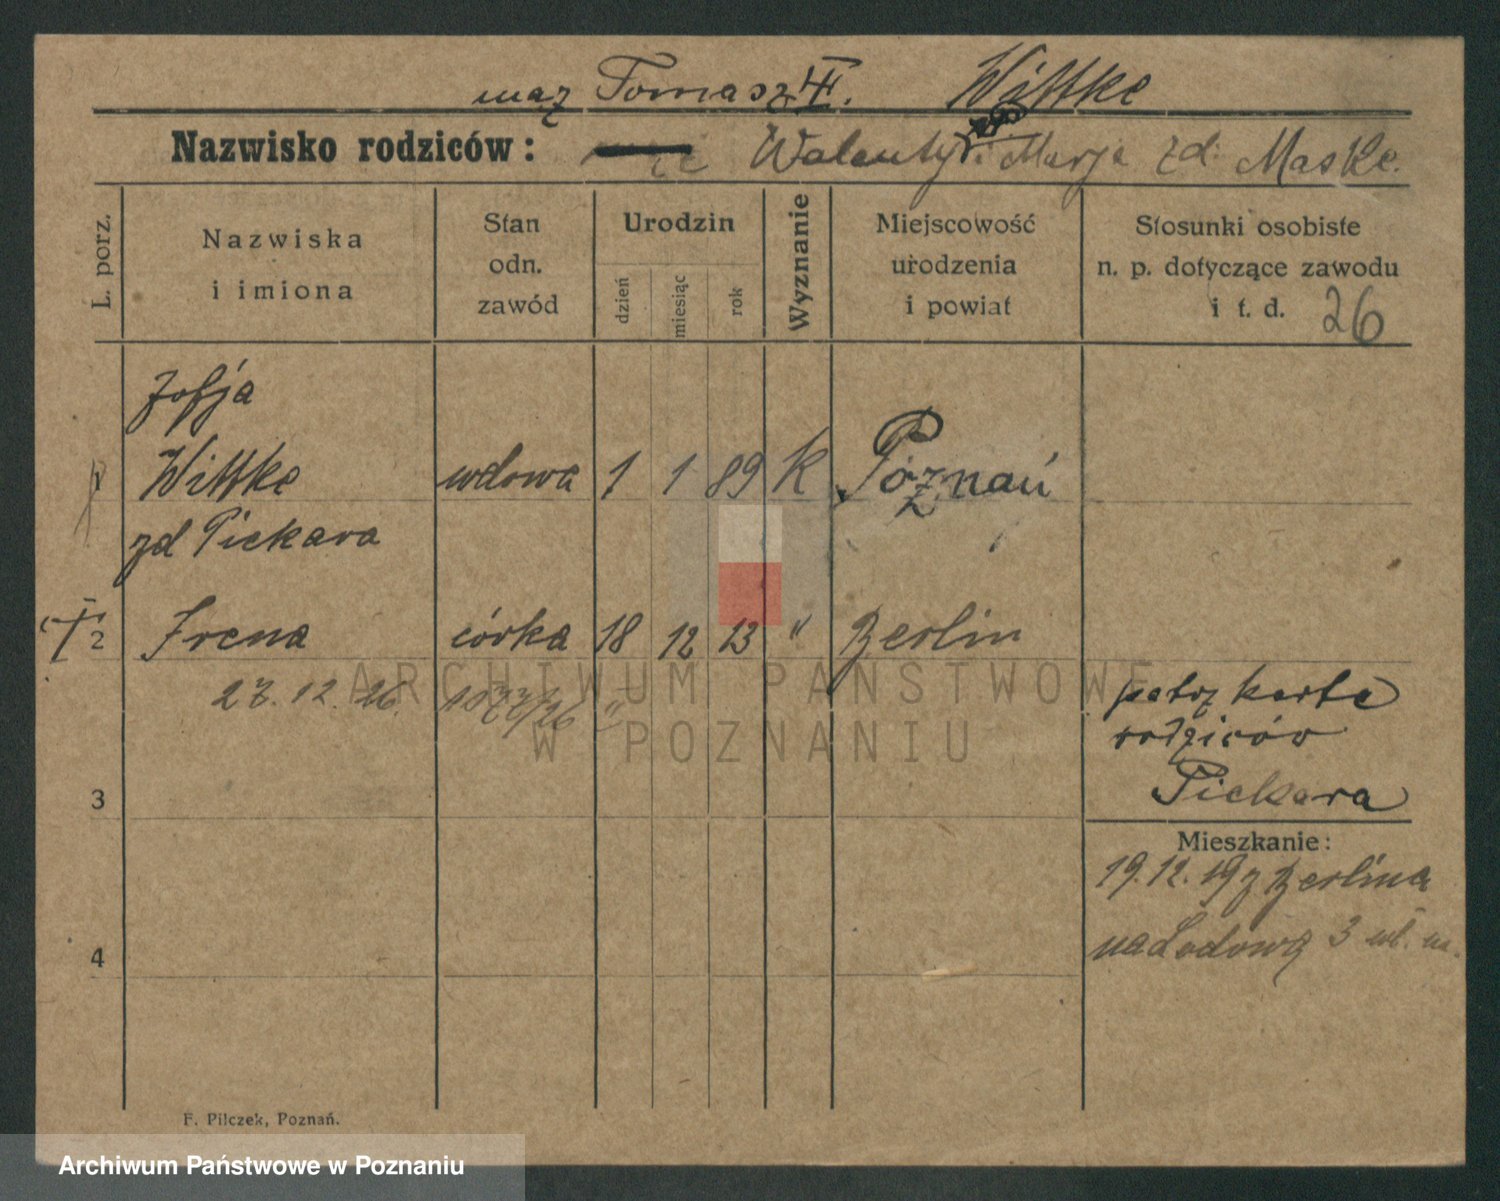 mąż Tomasz Wittke
Nazwisko rodziców: Walenty i Marja zd: Maske.
L. porz.
Nazwiska
i imiona
Stan
odn.
zawód
Urodzin
dzień
miesiąc
rok
Wyznanie
Miejscowość
urodzenia
i powiat
Stosunki osobiste
n. p. dotyczące zawodu
i t. d. 26
Zofja
1 Wittke wdowa 1 1 89 K Poznań
zd Piekara
2 Irena córka 18 12 13 " Berlin
27.12.26.
patrz karta
rodziców
Piekara
3
Mieszkanie:
19.12.19 z Berlina
na Lodową 3
4
F. Pilczek, Poznań.
ARCHIWUM PAŃSTWOWE
W POZNANIU
Archiwum Państwowe w Poznaniu